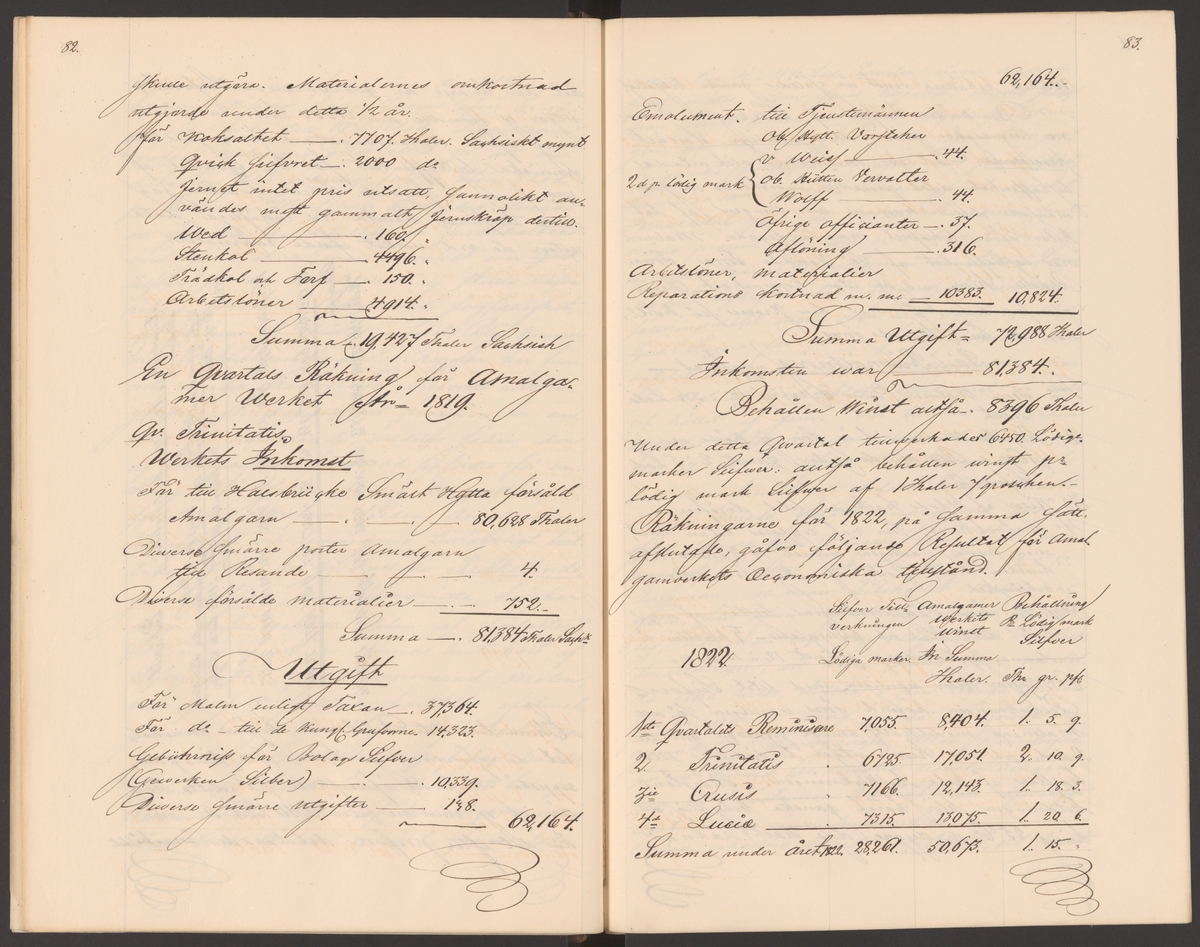 82.
skulle utgöra. Materialernes omkostnad
utgjorde under detta 1/2 år.
för Koksaltet —. 7707. Thaler. Sachsiskt mynt
Qvick silfvret —. 2000 do
Jernet intet pris utsatt, sannolikt an-
vändes mest gammalt Jernskräp dertill.
Wed —. 160.
Stenkol —. 4496.
Trädkol och Torf —. 150.
Arbetslöner —. 4914.
Summa —. 19,427 Thaler Sachsish
En Qvartals Räkning för Amalga-
mer Werket År 1819.
Qv. Trinitatis
Werkets Inkomst
För till Halsbrücke Smält Hytta försåld
Amalgam —. —. 80,628 Thaler
Diverse smärre poster Amalgam
till Resande — — — 4.
Diverse försålde materialier —. — 752.
Summa —. 81,384 Thaler Sachsk
Utgift
För Malm enligt Taxan —. 37,364.
För do — till de Kungl. Gruforne. 14,323.
Gebühruiss för Bolags Silfver
(Gewerken Silber) —. — 10,339.
Diverse smärre utgifter — 138.
62,164.
83.
62,164.-
Emolument. till Tjenstemännen
Ob. Hytt. Vorsteher
v Weiss —. 44.
2 d. pr. lödig mark { Ob. Hütten Verwalter
Wolff —. 44.
Öfrige officianter —. 37.
Aflöning —. 316.
Arbetslöner, materialier
Reparations kostnad m. m. — 10383. 10,824.
Summa Utgift = 72,988 Thaler
Inkomsten war — 81384.
Behållen Winst altså —. 8396 Thaler
Under detta Qvartal tillverkades 6450. Lödige
marker Silfver: altså behållen winst pr
lödig mark Silfver af 1 Thaler 7 groschen.-
Räkningarne för 1822, på samma sätt
afslutade, gåfvo följande Resultat för Amal-
gamverkets Oeconomiska tillstånd.
Silfver Till- Amalgamer Behållning
verkningen Werkets Pr Lödig mark
Winst Silfver
1822. Lödiga marker. In Summa
Thaler. Thr gr. pf.
1sta Qvartalet Reminiscere 7,055. 8,404. 1. 5. 9.
2. Trinitatis . 6725. 17,051. 2. 10. 9.
3je Crusis . 7166. 12,143. 1. 18. 3.
4de Luciæ . 7315. 13,075. 1. 20. 6.
Summa under året 1822. 28,261. 50,673. 1. 15. "